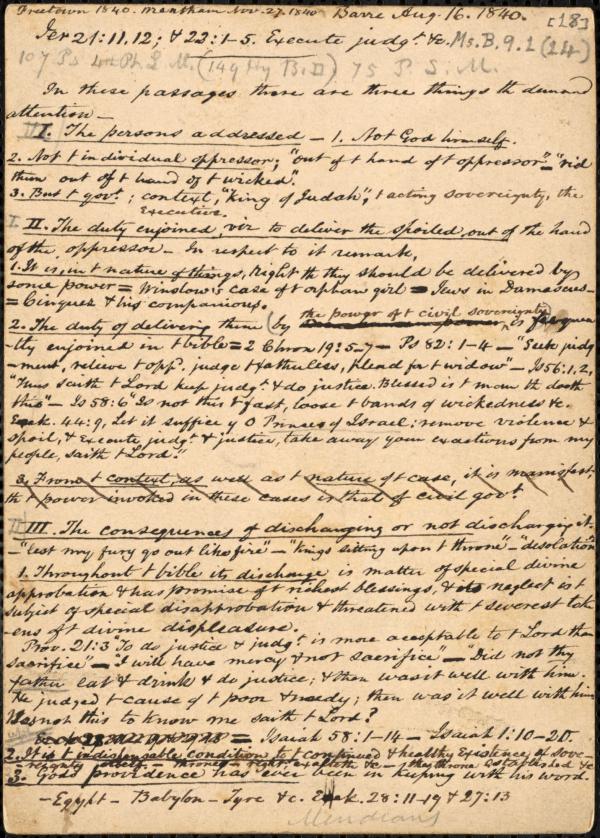 Freetown 1840. Mentham Nov. 27. 1840 Barre Aug. 16. 1840. [18]
Jer 21:11,12; & 22:1-5. Execute judgt. &c. Ms. B. 9. 2 (24)
107 Ps 4th Pt. L. M. (149 Hy B. II) 75 P. S. M.
In these passages there are three things th demand
attention —
I. The persons addressed — 1. Not God himself.
2. Not t individual oppressor; "out of t hand of t oppressor" — "rid
them out of t hand of t wicked".
3. But t govt.; context, "King of Judah", t acting sovereignty, the
executive.
I. II. The duty enjoined, viz to deliver the spoiled out of the hand
of the oppressor — In respect to it remark,
1. It is, in t nature of things, right th they should be delivered by
some power = Winslow's case of t orphan girl = Jews in Damascus =
= Cinquez & his companions.
2. The duty of delivering them (by the power of t civil sovereignty) is frequen
-tly enjoined in t bible = 2 Chron 19:5-7 — Ps 82:1-4 — "Seek judg
-ment, relieve t oppd. judge t fatherless, plead for t widow" — Is 56:1,2,
"Thus saith t Lord keep judgt. & do justice. Blessed is t man th doeth
this" — Is 58:6 "Is not this t fast, loose t bands of wickedness &c.
Ezek. 44:9, Let it suffice y O Princes of Israel: remove violence &
spoil, & Execute judgt. & justice, take away your exactions from my
people, saith t Lord."
3. From t context, as well as t nature of t case, it is manifest,
th t power invoked in these cases is that of civil govt.
III. The consequences of discharging or not discharging it.
— "lest my fury go out like fire" — "Kings sitting upon t throne" — "desolation"
1. Throughout t bible its discharge is matter of special divine
approbation & has promise of t richest blessings, & its neglect is t
subject of special disapprobation & threatened with t severest tok
-ens of divine displeasure.
Prov. 21:3 "To do justice & judgt. is more acceptable to t Lord than
sacrifice" — "I will have mercy & not sacrifice" — "Did not thy
father eat & drink & do justice; & then was it well with him.
He judged t cause of t poor & needy; then was it well with him
Was not this to know me saith t Lord?
= Isaiah 58:1-14 — Isaiah 1:10-20.
2. It is t indispensable conditions to t continued & healthy existence of sove-
-reignty — throne — right exalteth &c — the throne established &c
3. God's providence has ever been in keeping with his word.
— Egypt — Babylon — Tyre &c. Ezek. 28:11-19 & 27:13
Mendians